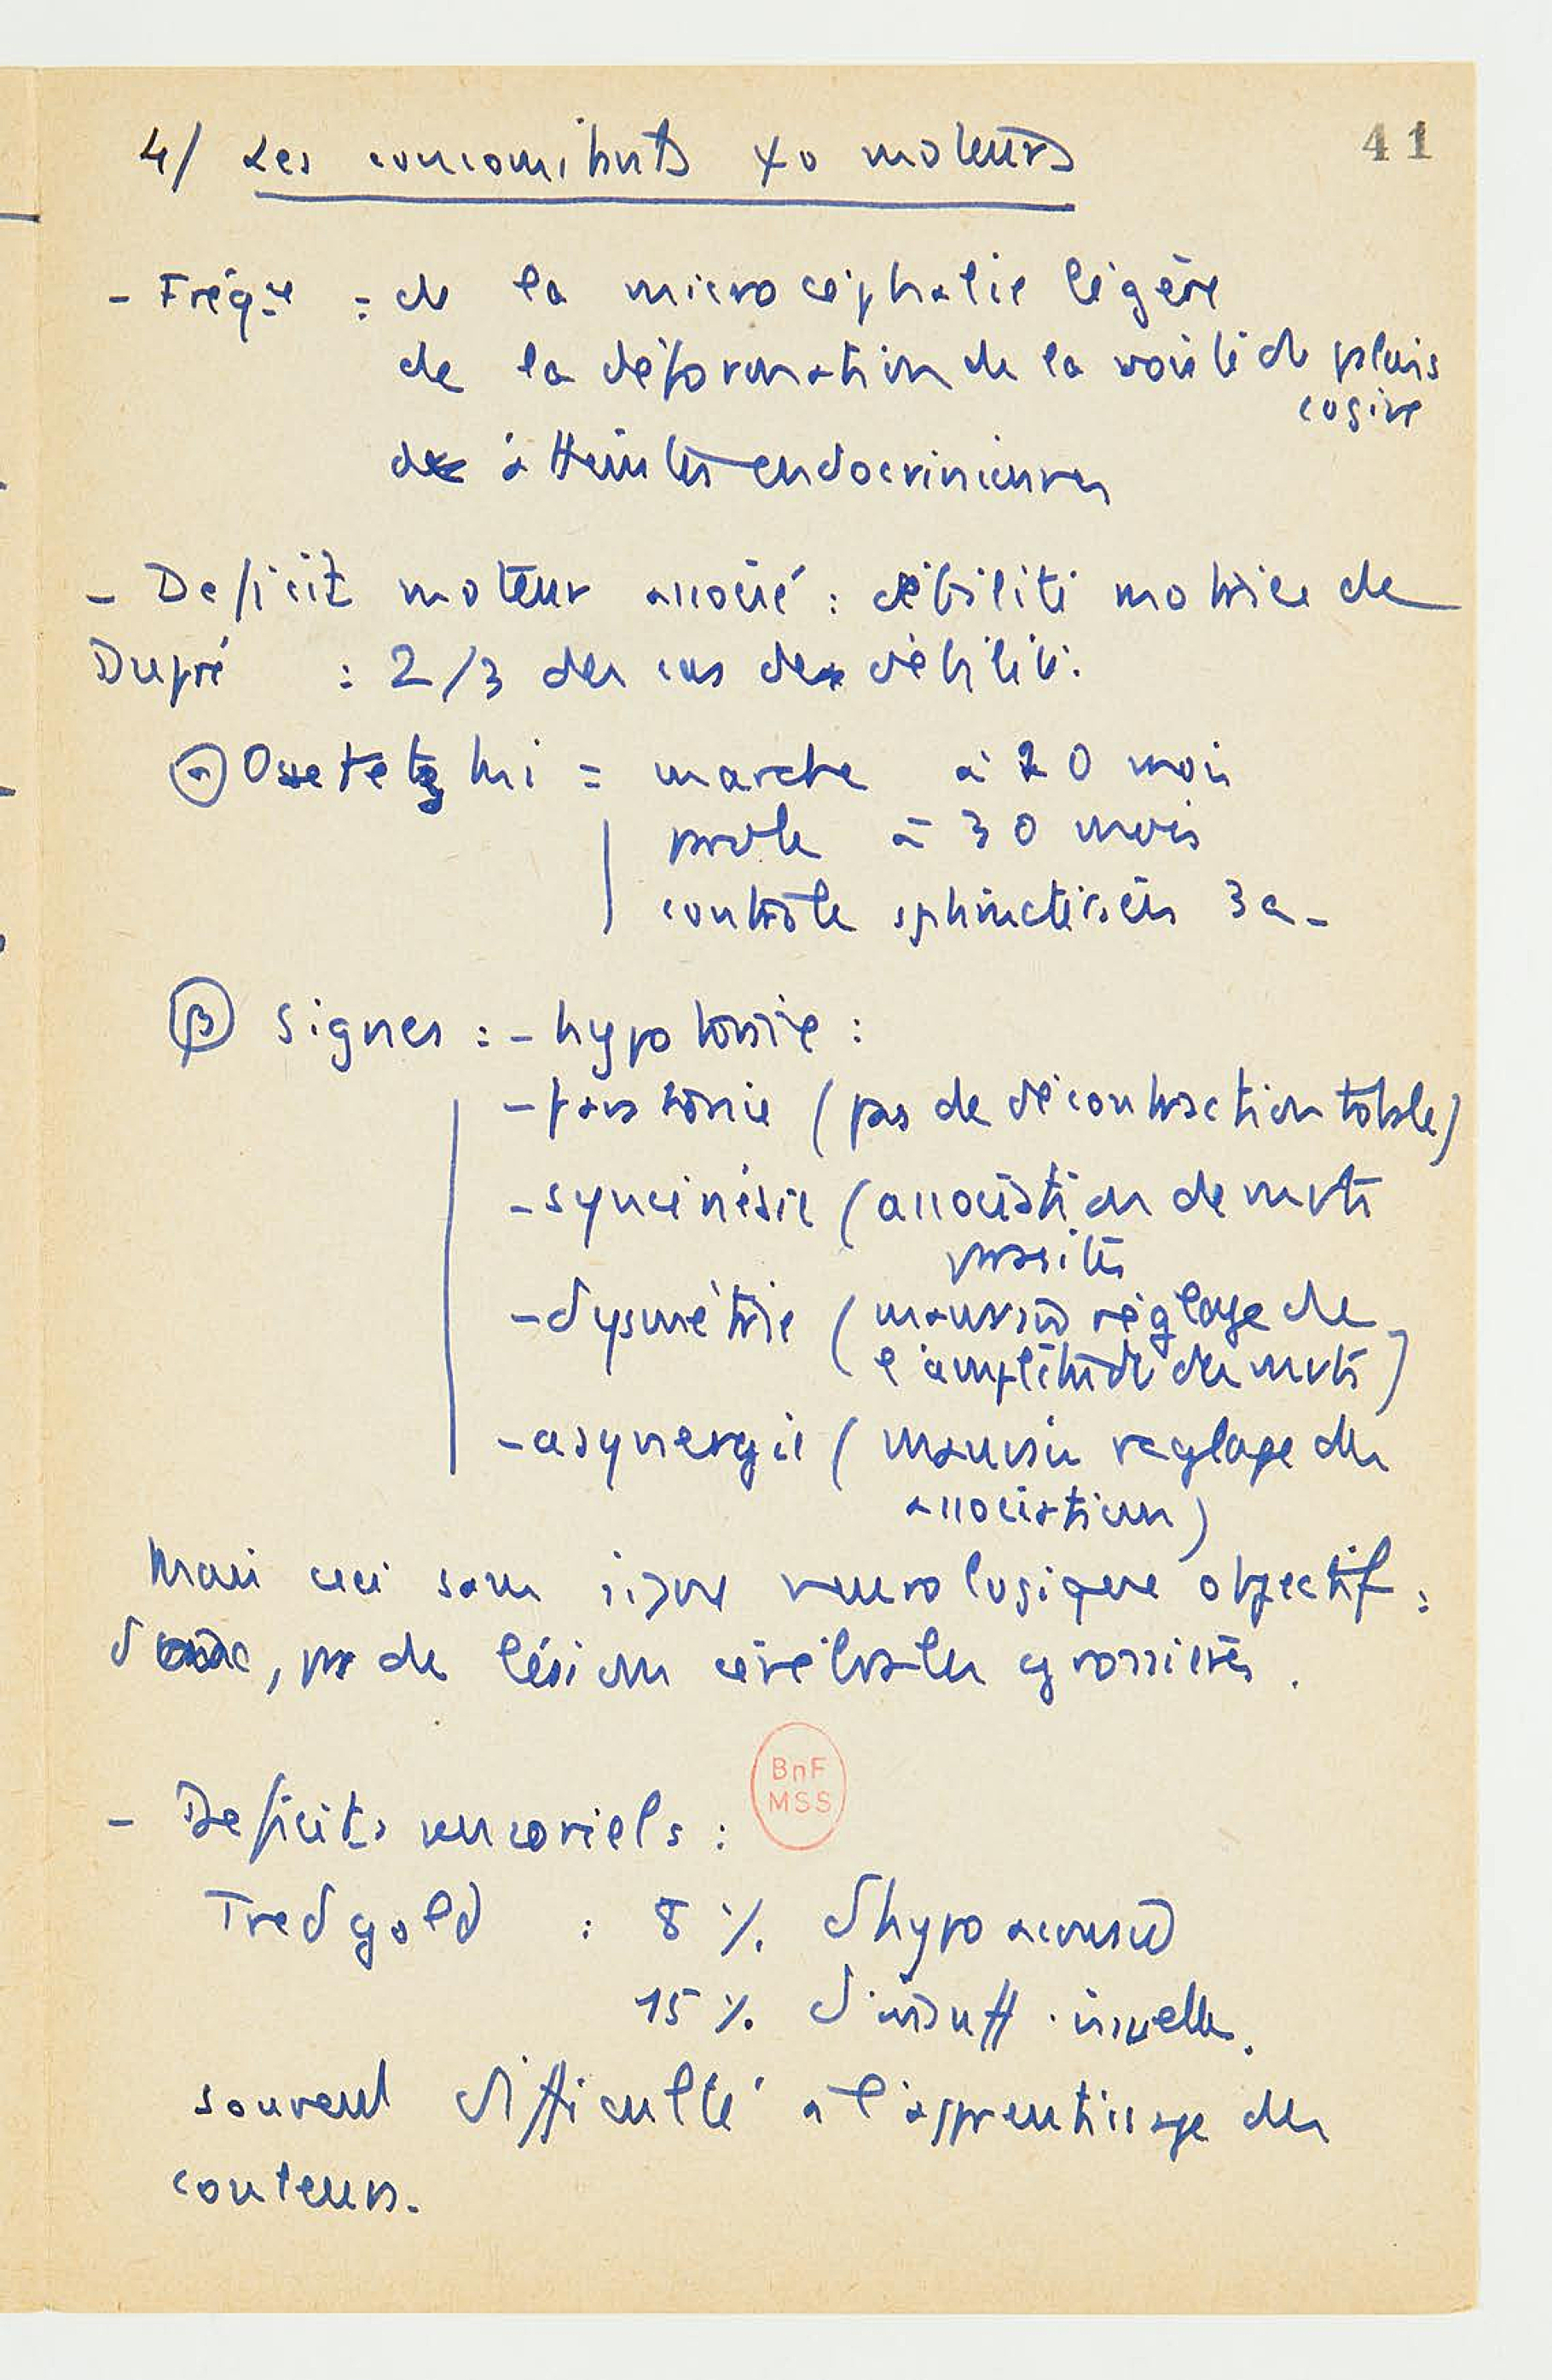 41
4/ Les concomitants ψo moteurs
- Fréq : de la microcéphalie légère
de la déformation de la voûte du palais
ogive
de atteintes endocriniennes
- Deficit moteur associé : débilité motrice de
Dupré : 2/3 des cas de débilité.
α = marche à 20 mois
parole à 30 mois
contrôle sphinctérien 3 a-
β Signes : - hypotonie :
- paratonie (pas de décontraction totale)
- syncinésie (association de mvts
parasites
- dysmétrie (mauvais réglage de
l'amplitude des mvts)
- asynergie (mauvais reglage des
associations)
Mais ceci sans signe neurologique objectif :
donc, pas de lésions cérébrales grossières.
BnF
MSS
- Deficits sensoriels :
Tredgold : 8 % d'hypoacousie
15 % d'insuff. visuelle.
souvent difficulté à l'apprentissage des
couleurs.